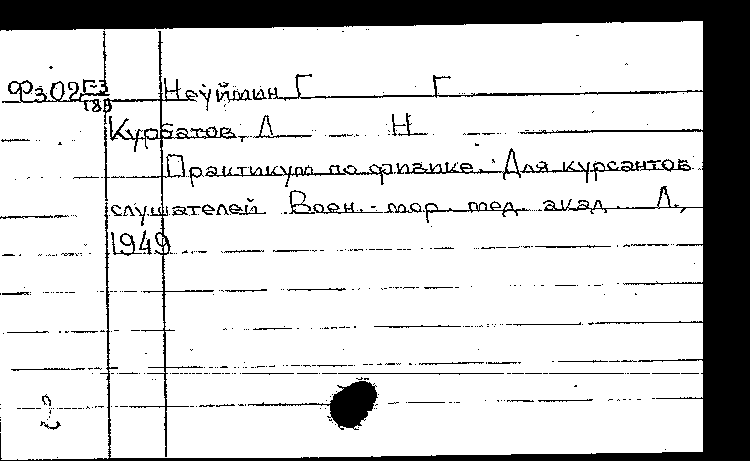 Фз02 Г-3/189 Неуймин Г Г
Курбатов, Л Н
Практикум по физике. Для курсантов
слушателей Воен.-мор. мед. акад. Л.,
1949
2